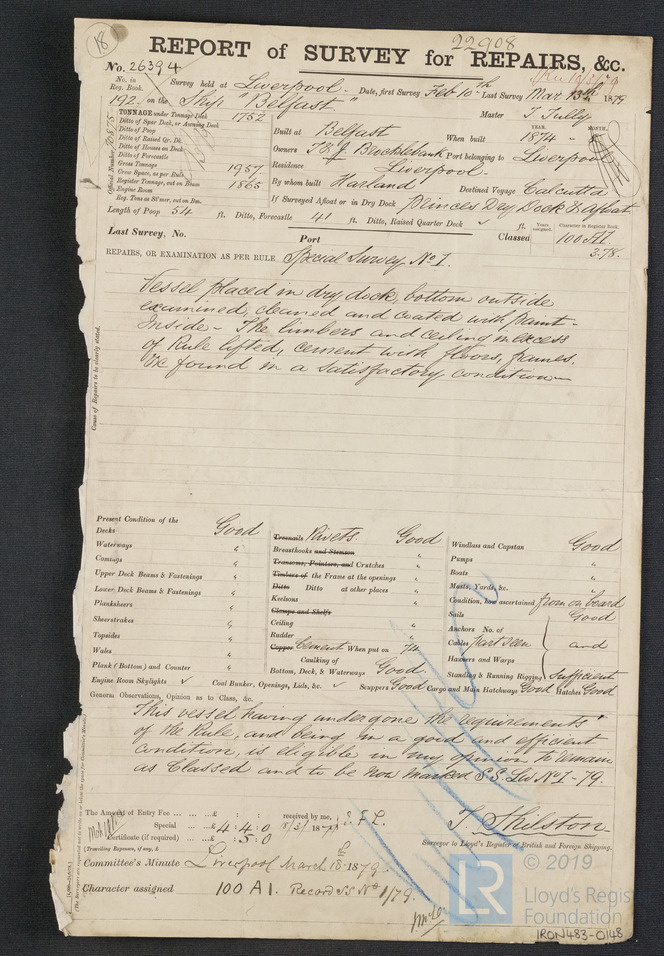 18
22908
REPORT of SURVEY for REPAIRS, &c.
No. 26394
No. in Reg. Book. Survey held at Liverpool. Date, first Survey Feb 10th Last Survey Mar. 13th 1879
192. on the Ship "Belfast" Master T Tully
TONNAGE under Tonnage Deck 1752
Ditto of Spar Deck, or Awning Deck
Ditto of Poop
Ditto of Raised Qr. Dk.
Ditto of Houses on Deck
Ditto of Forecastle
Gross Tonnage 1957
Crew Space, as per Rule
Register Tonnage, cut on Beam 1865
Engine Room
Reg. Tons as St'mer, cut on Bm.
Official Number
Built at Belfast When built YEAR. 1874 MONTH.
Owners T & J Brocklebank Port belonging to Liverpool
Residence Liverpool.
By whom built Harland Destined Voyage Calcutta
If Surveyed Afloat or in Dry Dock Princes Dry Dock & Afloat
Length of Poop 54 ft. Ditto, Forecastle 41 ft. Ditto, Raised Quarter Deck ✓ ft.
Last Survey, No. Port Classed Years assigned. Character in Register Book. 100 A1
3.78.
REPAIRS, OR EXAMINATION AS PER RULE Special Survey No 1.
Vessel placed in dry dock, bottom outside
examined, cleaned and coated with paint-
Inside - The limbers and ceiling in excess
of Rule lifted, cement with floors, frames.
&c found in a satisfactory condition
Cause of Repairs to be clearly stated.
Present Condition of the
Decks Good
Waterways "
Comings "
Upper Deck Beams & Fastenings "
Lower Deck Beams & Fastenings "
Planksheers "
Sheerstrakes "
Topsides "
Wales "
Plank (Bottom) and Counter "
Engine Room Skylights ✓
Treenails Rivets Good
Breasthooks and Stemson "
Transoms, Pointers, and Crutches "
Timbers of the Frame at the openings "
Ditto Ditto at other places "
Keelsons "
Clamps and Shelfs
Ceiling "
Rudder "
Copper Cement When put on 74
Caulking of
Bottom, Deck, & Waterways Good
Coal Bunker, Openings, Lids, &c. ✓ Scuppers Good Cargo and Main Hatchways Good Hatches Good
Windlass and Capstan Good
Pumps "
Boats "
Masts, Yards, &c. "
Condition, how ascertained from on board
Sails Good
Anchors No. of
Cables part seen and
Hawsers and Warps
Standing & Running Rigging Sufficient
General Observations, Opinion as to Class, &c.
This vessel having undergone the requirements
of the Rule, and being in a good and efficient
condition, is eligible in my opinion to remain
as Classed and to be now marked S.S. No 1 - 79.
The Amount of Entry Fee ... ... £ : : received by me,
Special ... ... £ 4 : 4 : 0 18
Certificate (if required) ... £ : 5 : 0
(Travelling Expenses, if any, £
T. Skilston
Surveyor to Lloyd's Register of British and Foreign Shipping.
Committee's Minute Liverpool March 18 1879
Character assigned 100 A1. Record SS No 1/79.
© 2019
LR
Lloyd's Register
Foundation
IRON483-0148